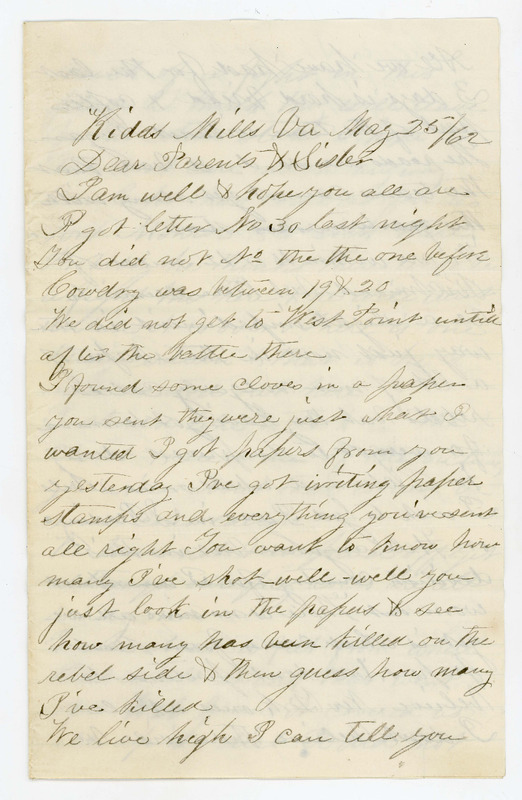 "Kidds Mills Va May 25/62
Dear Parents & Sister
I am well & hope you all are
I got letter No 30 last night
You did not No the the one before
Cowdry was between 19 & 20
We did not get to West Point untill
after the battle there
I found some cloves in a paper
you sent they were just what I
wanted I got papers from you
yesterday I've got writing paper
stamps and everything you've sent
all right You want to know how
many I've shot-well-well you
just look in the papers & see
how many has been killed on the
rebel side & then guess how many
I've killed
We live high I can tell you